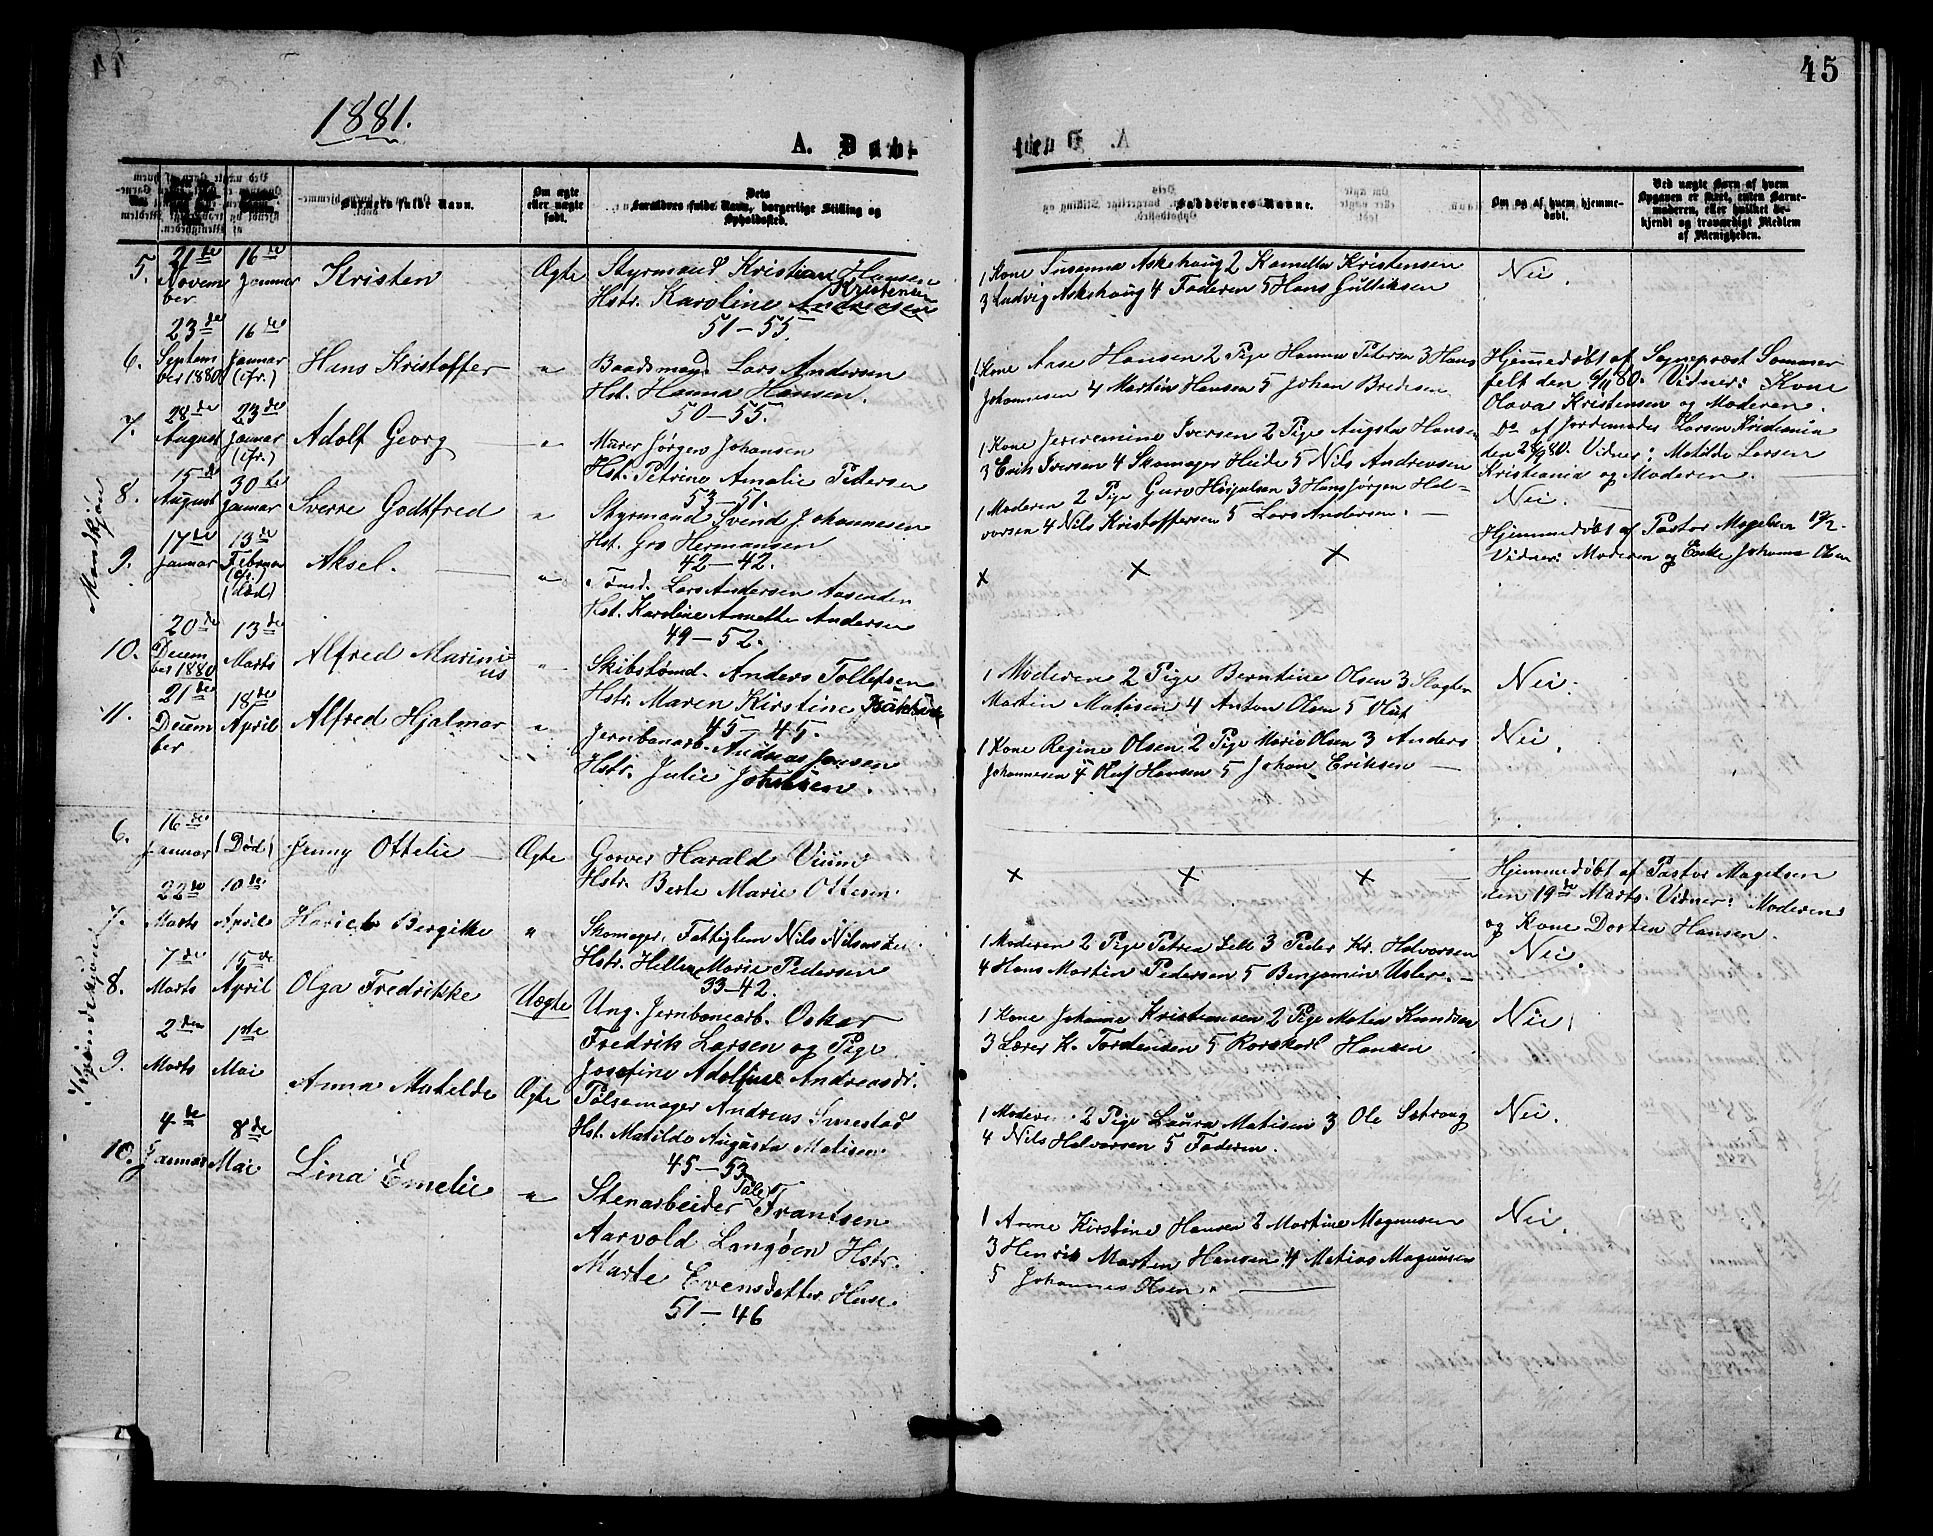 45
1881.
A. Døbt
Barnets fulde Navn.
Om ægte eller uægte født.
Dets Forældres fulde Navn, borgerlige Stilling og Opholdssted.
Faddernes Navne.
Om og af hvem hjemmedøbt.
Ved uægte Barn af hvem Opgaven er skeet, enten Barnemoderen, eller hvilket bekjendt og troværdigt Medlem af Menigheden.
Mandkjøn
5. 21de November 16de Januar Kristen Ægte Styrmand Kristian Hansen
Hstr. Karoline Andreasen Kristensen
51-55.
1 Kone Susanna Askehaug 2 Kamella Kristensen
3 Ludvig Askehaug 4 Faderen 5 Hans Gulliksen
Nei
6. 23de September 1880 16de Januar (cfr.) Hans Kristoffer " Baadsmand Lars Andersen
Hst. Hanna Hansen.
50-55.
1 Kone Aase Hansen 2 Pige Hanna Petersen 3 Hans
Johannesen 4 Martin Hansen 5 Johan Bredesen
Hjemmedøbt af Sogneprest Sommerfelt den 6/11 80. Vidner: Kone
Olava Kristensen og Moderen.
7. 28de August 23de Januar (cfr.) Adolf Georg " Murer Jørgen Johansen
Hst. Petrine Amalie Pedersen
53-51.
1 Kone Jereremine Iversen 2 Pige Augsta Hansen
3 Erik Iversen 4 Skomager Heide 5 Nils Andreasen
Do af Jordemoder Larsen Kristiania
Vidner: Matilde Larsen
Kristiania og Moderen.
8. 15de August 30te Januar Sverre Godtfred " Styrmand Svend Johannesen
Hst. Gro Hermansen
42-42.
1 Moderen 2 Pige Guro 3 Hans Jørgen Halvorsen
4 Nils Kristoffersen 5 Lars Andersen.
Nei.
9. 17de Januar 13de Februar (cfr.) (død) Aksel. " Tømd. Lars Andersen Aasenden
Hst. Karoline Annette Andersen
49-52.
x x x
Hjemmedøbt af Pastor Magelsen
Vidner: Moderen og Enke Johanne Olsen
10. 20de December 1880 13de Marts Alfred Marinius " Skibstømd. Anders Tollefsen
Hstr. Maren Kirstine
45-45.
1 Moderen 2 Pige Berntine Olsen 3 Slagter
Martin Matisen 4 Anton Olsen 5 Oluf
Nei.
11. 21de December 18de April Alfred Hjalmar " Jernbanearb. Andreas Jensen
Hstr. Julie Johnsen.
1 Kone Regine Olsen 2 Pige Marie Olsen 3 Anders
Johannesen 4 Oluf Hansen 5 Johan Eriksen
Nei.
Kvindekjøn
6. 16de Januar (Død) Jenny Ottelie Ægte Garver Harald Vium
Hstr. Berte Marie Ottesen.
x x x
Hjemmedøbt af Pastor Magelsen
den 19de Marts. Vidner: Moderen
og Kone Dorten Hansen.
7. 22de Marts 10de April Hariet Bergitte " Skomager, Fattiglem Nils Nilsen
Hstr. Helle Marie Pedersen
33-42.
1 Moderen 2 Pige Petrea Lelle 3 Peder Kr. Halvorsen
4 Hans Martin Pedersen 5 Benjamin Usler.
Nei.
8. 7de Marts 15de April Olga Fredrikke Uægte Ung. Jernbanearb. Oskar
Fredrik Larsen og Pige
Josefine Adolfine Andreasdr.
1 Kone Johanne Kristiansen 2 Pige Matea Knudsen
3 Lærer K. Tordensen 5 Rorskarl Hansen
Nei
9. 2den Marts 1ste Mai Anna Matelde Ægte Pølsemager Andreas Smestad
Hst. Matilde Augusta Matisen
45-53
1 Moderen 2 Pige Laura Matisen 3 Ole Sætrang
4 Nils Halvorsen 5 Faderen.
Nei.
10. 4de Januar 8de Mai Lina Emelie " Stenarbeider Frantsen
Aarvold Langøen Hstr.
Marte Evensdatter Huse.
51-46
1 Anne Kirstine Hansen 2 Martine Magnusen
3 Henrik Morten Hansen 4 Matias Magnusen
5 Johannes Olsen.
Nei.